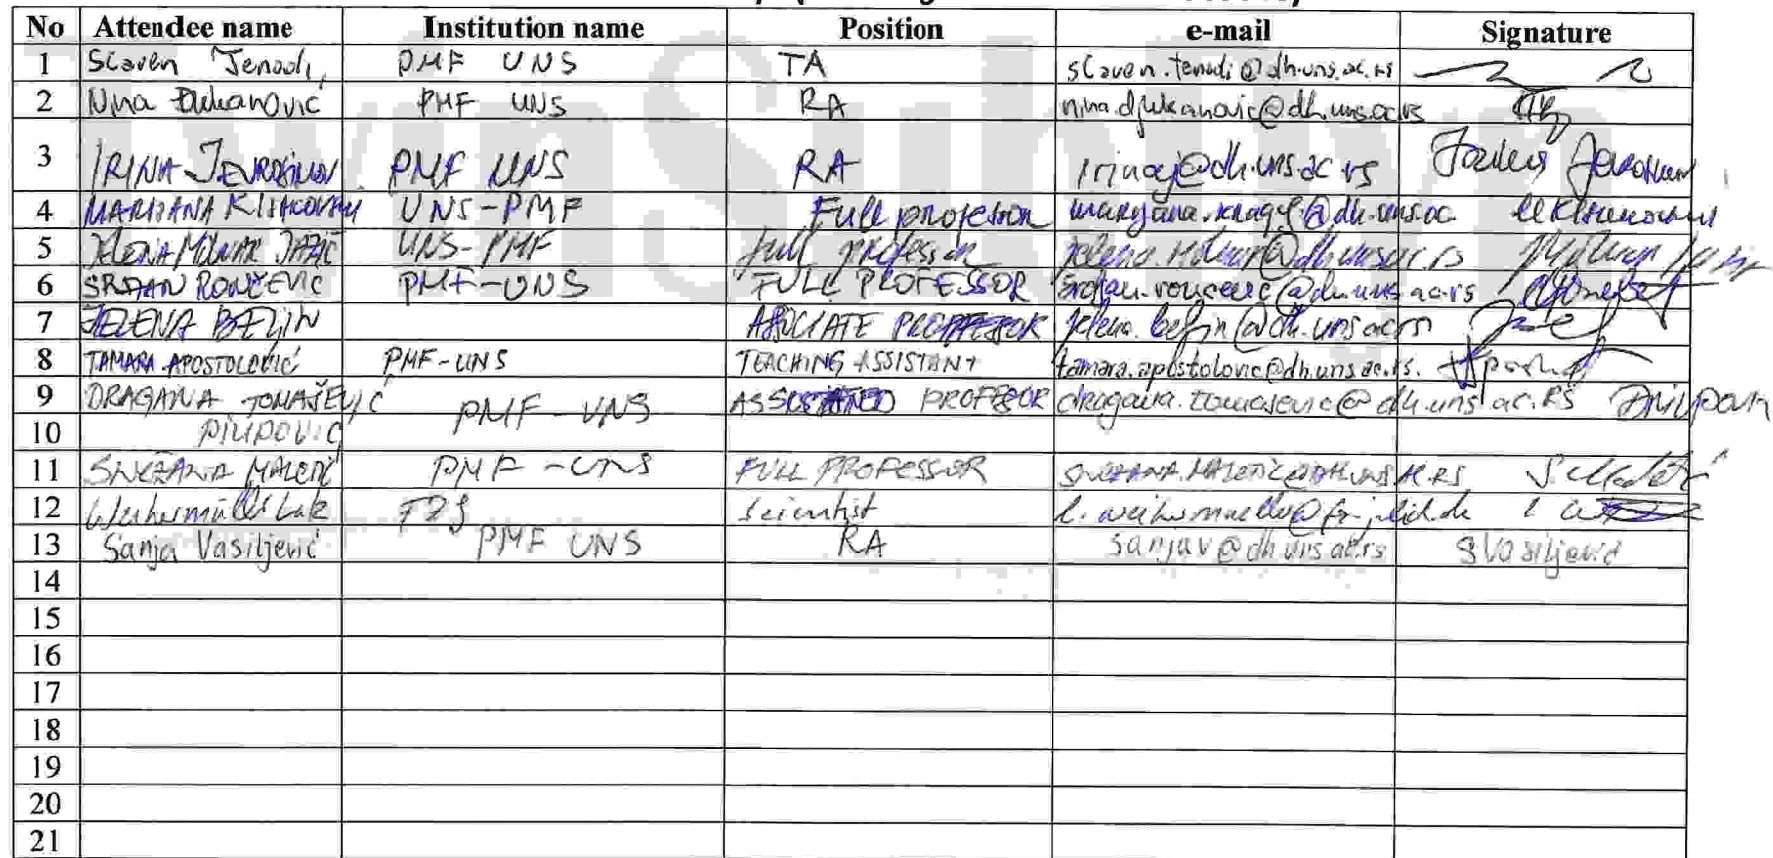 No Attendee name Institution name Position e-mail Signature
1 Slaven Tenodi, PMF UNS TA slaven.tenodi@dh.uns.ac.rs
2 Nina Đukanović PMF UNS RA nina.djukanovic@dh.uns.ac.rs
3 IRINA JEVROSIMOV PMF UNS RA irinaj@dh.uns.ac.rs
4 MARIJANA UNS-PMF Full professor
5 JELENA MOLNAR JAZIĆ UNS-PMF full professor jelena.molnar@dh.uns.ac.rs
6 SRĐAN RONČEVIĆ PMF-UNS FULL PROFESSOR srdjan.roncevic@dh.uns.ac.rs
7 JELENA BELJIN ASSOCIATE PROFESSOR jelena.beljin@dh.uns.ac.rs
8 TAMARA APOSTOLOVIĆ PMF-UNS TEACHING ASSISTANT tamara.apostolovic@dh.uns.ac.rs.
9 DRAGANA TOMAŠEVIĆ PMF-UNS PROFESSOR dragana.tomasevic@dh.uns.ac.RS
10 PILIPOVIĆ
11 SNEŽANA MALETIĆ PMF-UNS FULL PROFESSOR SNEZANA.MALETIC@DH.UNS.AC.RS S. Maletić
12 FZJ Scientist
13 Sanja Vasiljević PMF UNS RA sanjav@dh.uns.ac.rs SVasiljević
14
15
16
17
18
19
20
21